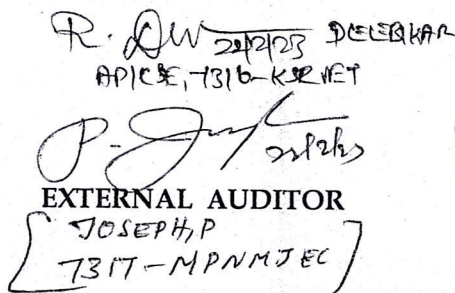 R. 22/2/23
AP/CSE, 7316-KSRIET
P. 22/2/23
EXTERNAL AUDITOR
[JOSEPH, P
7317-MPNMJEC]